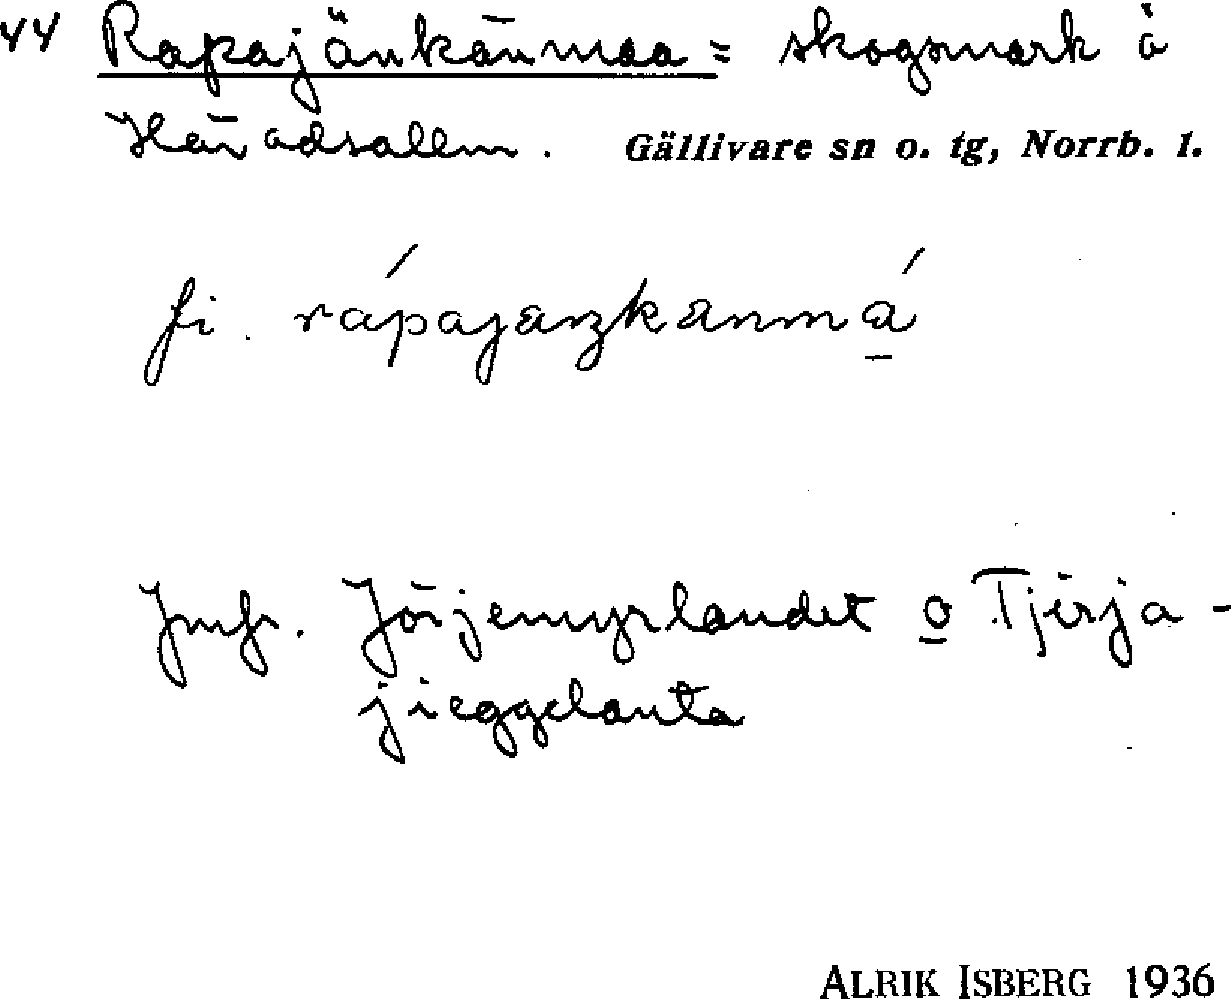 44 Rapajänkänmaa = skogsmark å
Häradsallm. Gällivare sn o. tg, Norrb. l.
fi. rápajaŋkanmá̱
Jmfr. Jörjemyrlandet o̲ Tjerja-
jieggelanta
ALRIK ISBERG 1936